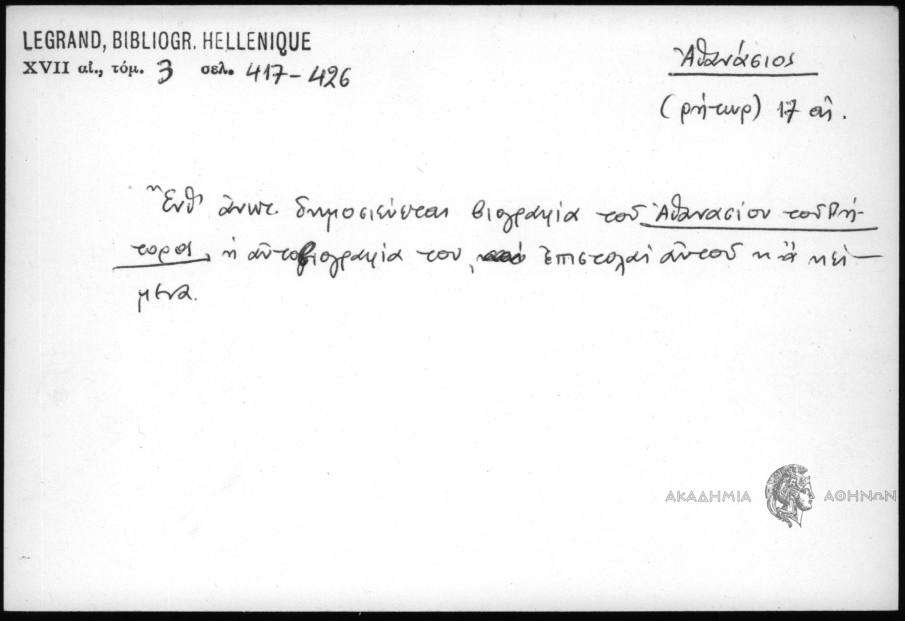 LEGRAND, BIBLIOGR. HELLENIQUE
XVII αἰ., τόμ. 3 σελ. 417-426
Ἀθανάσιος
(ρήτωρ) 17 αἰ.
Ἔνθ' ἄνωτ. δημοσιεύεται βιογραφία τοῦ Ἀθανασίου τοῦ Ρή-
τορος, ἡ αὐτοβιογραφία του, ἐπιστολαί αὐτοῦ κ' ἄ κεί-
μενα.
ΑΚΑΔΗΜΙΑ ΑΘΗΝΩΝ